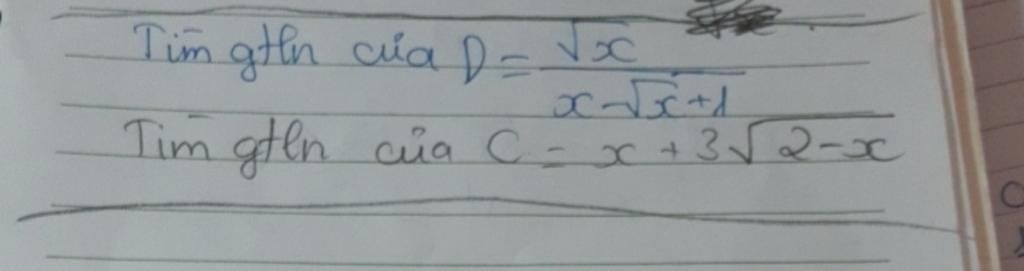 Tìm gtln của D = \frac{\sqrt{x}}{x-\sqrt{x}+1}
Tìm gtln của C = x + 3\sqrt{2-x}